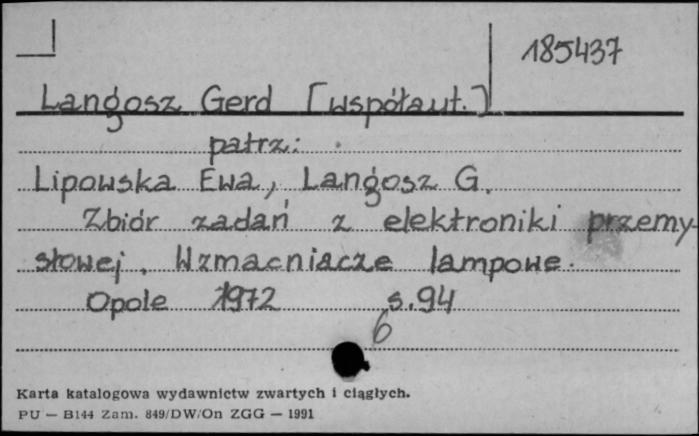 185437
Langosz Gerd [współaut.]
patrz:
Lipowska Ewa, Langosz G.
Zbiór zadań z elektroniki przemy-
słowej. Wzmacniacze lampowe.
Opole 1972 s.94
6
Karta katalogowa wydawnictw zwartych i ciągłych.
PU — B144 Zam. 849/DW/On ZGG — 1991